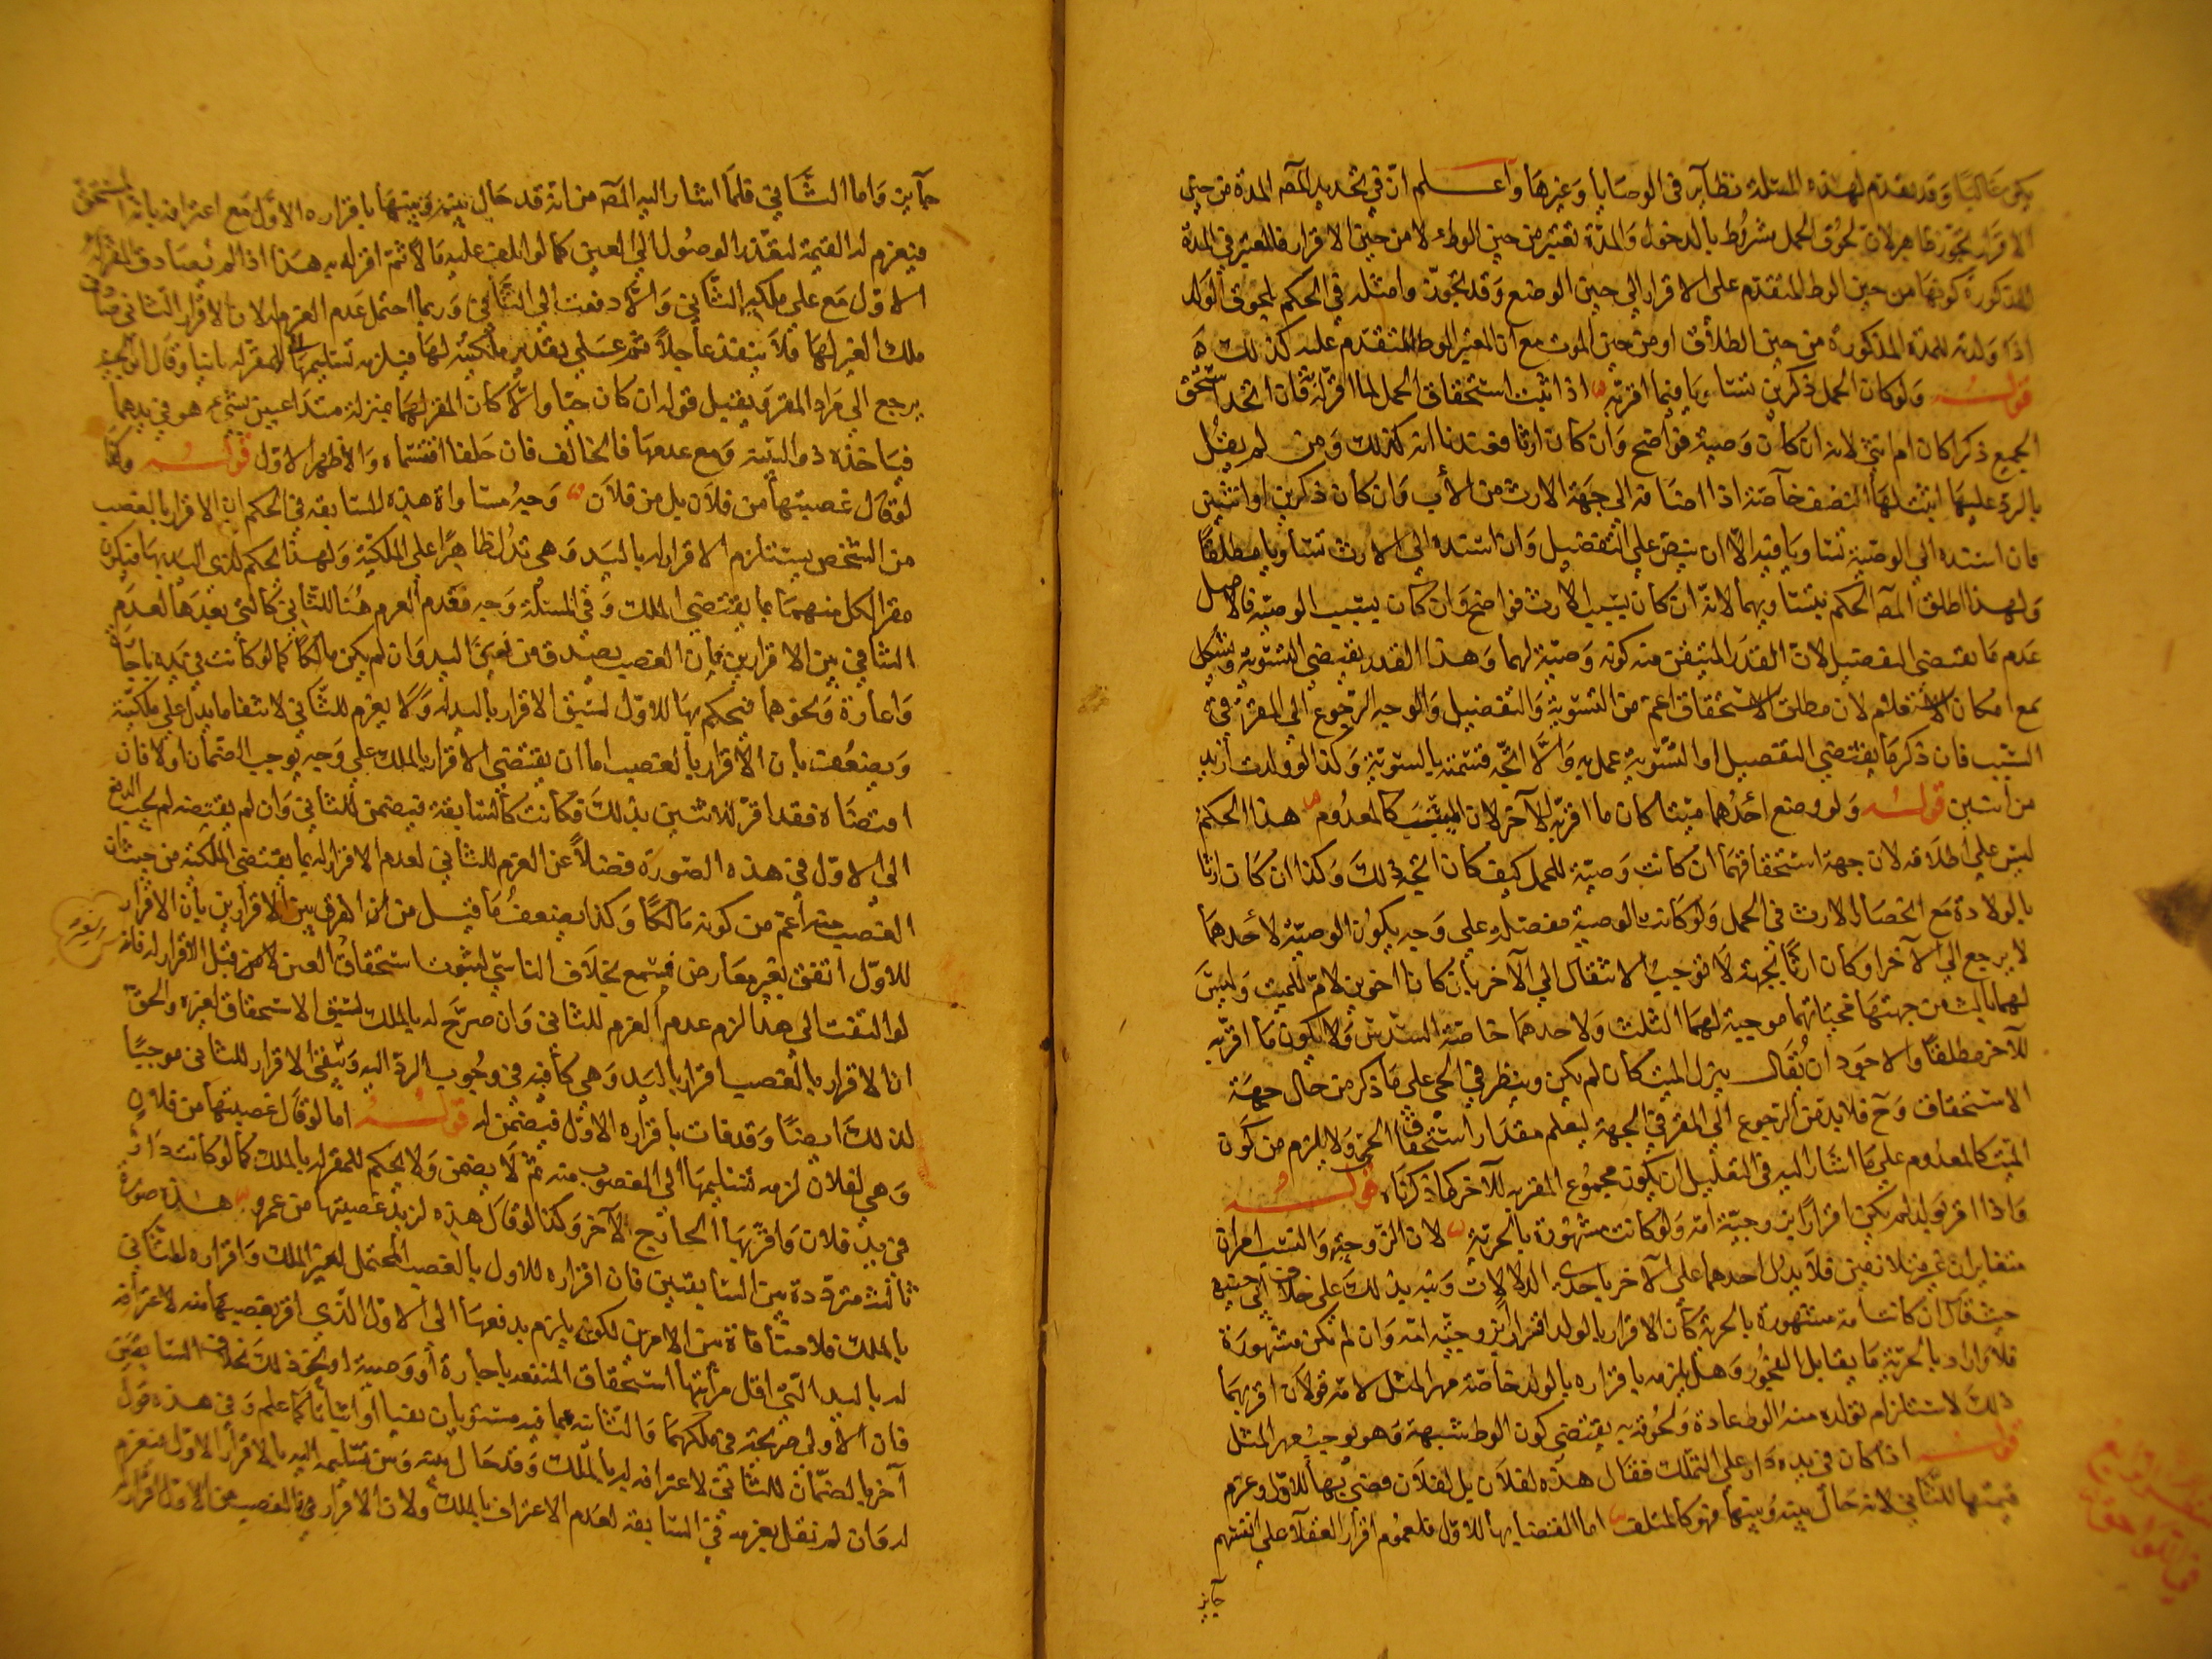 يكون غالبا وقد تقدم لهذه المسئلة نظاير في الوصايا وغيرها واعلم ان في تحديد المصـ المدة من حين
الاقرار تجوز ظاهر لان لحوق الحمل مشروط بالدخول والمدة تعتبر من حين الوطء لا من حين الاقرار فالمعتبر في المدة
المذكورة كونها من حين الوطء المتقدم على الاقرار الى حين الوضع وقد تجوز وامثله في الحكم بلحوق الولد
اذا ولدته للمدة المذكورة من حين الطلاق او من حين الموت مع ان المعتبر الوطء المتقدم عليه كذلك
قوله ولو كان الحمل ذكرين تساويا فيما اقر به اذا ثبت استحقاق الحمل لما اقر به فان اتحد استحق
الجميع ذكرا كان ام انثى لانه ان كان وصية فواضح وان كان ارثا فعندنا انه كذلك ومن لم يقل
بالرد عليها اثبت لها النصف خاصة اذا اضافه الى جهة الارث من الاب وان كان ذكرين او انثيين
فان اسنده الى الوصية تساويا فيه الا ان ينص على التفضيل وان اسنده الى الارث تساويا مطلقا
ولهذا اطلق المصـ الحكم بتساويهما لانه ان كان بسبب الارث فواضح وان كان بسبب الوصية فالاصل
عدم ما يقتضي التفضيل لان القدر المتيقن منه كونه وصية لهما وهذا القدر يقتضي التسوية ويشكل
مع امكان الاستعلام لان مطلق الاستحقاق اعم من التسوية والتفضيل والوجه الرجوع الى المقر في
السبب فان ذكر ما يقتضي التفصيل او التسوية عمل به والا اتجه قسمته بالسوية وكذا لو ولدت ازيد
من اثنين قوله ولو وضع احدهما ميتا كان ما اقر به للاخر لان الميت كالمعدوم هذا الحكم
ليس على اطلاقه لان جهة استحقاقهما ان كانت وصية للحمل كيف كان اتجه ذلك وكذا ان كان ارثا
بالولادة مع انحصار الارث في الحمل ولو كانت الوصية مفصلة على وجه يكون الوصية لاحدهما
لا يرجع الى الآخر او كان ارثا بجهة لا توجب الانتقال الى الآخر بان كانا اخوين لام للميت وليس
لهما ثالث من جهتها فحياتهما موجبة لهما الثلث ولاحدهما خاصة السدس ولا يكون ما اقر به
للآخر مطلقا والاجود ان يقال ينزل الميت كان لم يكن وينظر في الحي على ما ذكر من حال جهة
الاستحقاق وح فلا بد من الرجوع الى المقر في الجهة ليعلم مقدار استحقاق الحي ولا يلزم من كون
الميت كالمعدوم على ما اشار اليه في التعليل ان يكون مجموع المقر به للآخر كما ذكرناه قوله
واذا اقر بولد لم يكن اقرارا بزوجية امه ولو كانت مشهورة بالحرية لان الزوجية والنسب امران
متغايران غير متلازمين فلا يدل احدهما على الآخر باحدى الدلالات ونبه بذلك على خلاف ابي حنيفة
حيث قال ان كانت امه مشهورة بالحرية كان الاقرار بالولد اقرارا بزوجية امه وان لم تكن مشهورة
فلا واراد بالحرية ما يقابل الفجور وهل يلزمه باقراره بالولد خاصة مهر المثل لامه قولان اقربهما
ذلك لاستلزام تولده منه الوطء عادة ولحوقه به يقتضي كون الوطء شبهة وهو يوجب مهر المثل
قوله اذا كان في يده دار على التملك فقال هذه لفلان بل لفلان قضي بها للاول وغرم
قيمتها للثاني لانه حال بينه وبينها فهو كالمتلف اما القضا بها للاول فلعموم اقرار العقلاء على انفسهم
جايز
جآيز واما الثاني فلما اشار اليه المصـ من انه قد حال بينه وبينها باقراره الاول مع اعترافه بانه المستحق
فيغرم له القيمة لتعذر الوصول الى العين كما لو اتلف عليه مالا ثم اقر له به هذا اذا لم يصادق المقر له
الاول مع على ملكية الثاني والا دفعت الى الثاني وربما احتمل عدم الغرم لان الاقرار الثاني صادف
ملك الغير لها فلا ينفذ عاجلا نعم على تقدير ملكيته لها فيلزمه تسليمها الى المقر له ثانيا وقال ابن الجنيد
يرجع الى مراد المقر ويقبل قوله ان كان حيا والا كان المقر لهما بمنزلة متداعيين بشيء هو في يدهما
فياخذه ذو البينة ومع عدمها فالحالف فان حلفا اقتسماه والاظهر الاول قوله وكذا
لو قال غصبتها من فلان بل من فلان وجه مساواة هذه للسابقة في الحكم ان الاقرار بالغصب
من الشخص يستلزم الاقرار له باليد وهي تدل ظاهرا على الملكية ولهذا يحكم لذي اليد بها فيكون
مقرا لكل منهما بما يقتضي الملك وفي المسئلة وجه بعدم الغرم هنا للثاني كالتي بعدها لعدم
التنافي بين الاقرارين فان الغصب يصدق من ذي اليد وان لم يكن مالكا كما لو كانت في يده باجارة
واعارة ونحوهما فيحكم بها للاول لسبق الاقرار باليد له ولا يغرم للثاني لانتفا ما يدل على ملكيته
ويضعف بان الاقرار بالغصب اما ان يقتضي الاقرار بالملك على وجه يوجب الضمان اولا فان
اقتضاه فقد اقر للاثنين بذلك فكانت كالسابقة فيضمن للثاني وان لم يقتضه لم يجب الدفع
الى الاول في هذه الصورة فضلا عن الغرم للثاني لعدم الاقرار له بما يقتضي الملكية من حيث ان
الغصب منه اعم من كونه مالكا وكذا يضعف ما قيل من ان الفرق بين الاقرارين بان الاقرار
للاول اتفق بغير معارض فيسمع بخلاف الثاني لثبوت استحقاق العين لامن قبل الاقرار له فانه
لو التفت الى هذا لزم عدم الغرم للثاني وان صرح له بالملك لسبق الاستحقاق لغيره والحق
ان الاقرار بالغصب اقرار باليد وهي كافية في وجوب الرد اليه ويبقى الاقرار للثاني موجبا
لذلك ايضا وقد فات باقراره الاول فيضمن له قوله اما لو قال غصبتها من فلان
وهي لفلان لزمه تسليمها الى المغصوب منه ثم لا يضمن ولا يحكم للمقر له بالملك كما لو كانت دار
في يد فلان واقر بها الخارج لآخر وكذا لو قال هذه لزيد غصبتها من عمرو هذه صورة
ثالثة مترددة بين السابقتين فان اقراره للاول بالغصب المحتمل لغير الملك واقراره للثاني
بالملك فلا منافاة بين الامرين لكونه يلزم بدفعها الى الاول الذي اقر بغصبها منه لاعترافه
له باليد التي اقل مراتبها استحقاق المنفعة باجارة او وصية او نحو ذلك بخلاف السابقتين
فان الاولى صريحة في ملكهما والثانية هما فيه مستويان نفيا او اثباتا كما علم وفي هذه قول
آخر بالضمان للثاني لاعترافه له بالملك وقد حال بينه وبين تسليمه اليه بالاقرار الاول فيغرم
له وان لم نقل بغرمه في السابقة لعدم الاعتراف بالملك ولان الاقرار في بالغصب من الاول اقرار